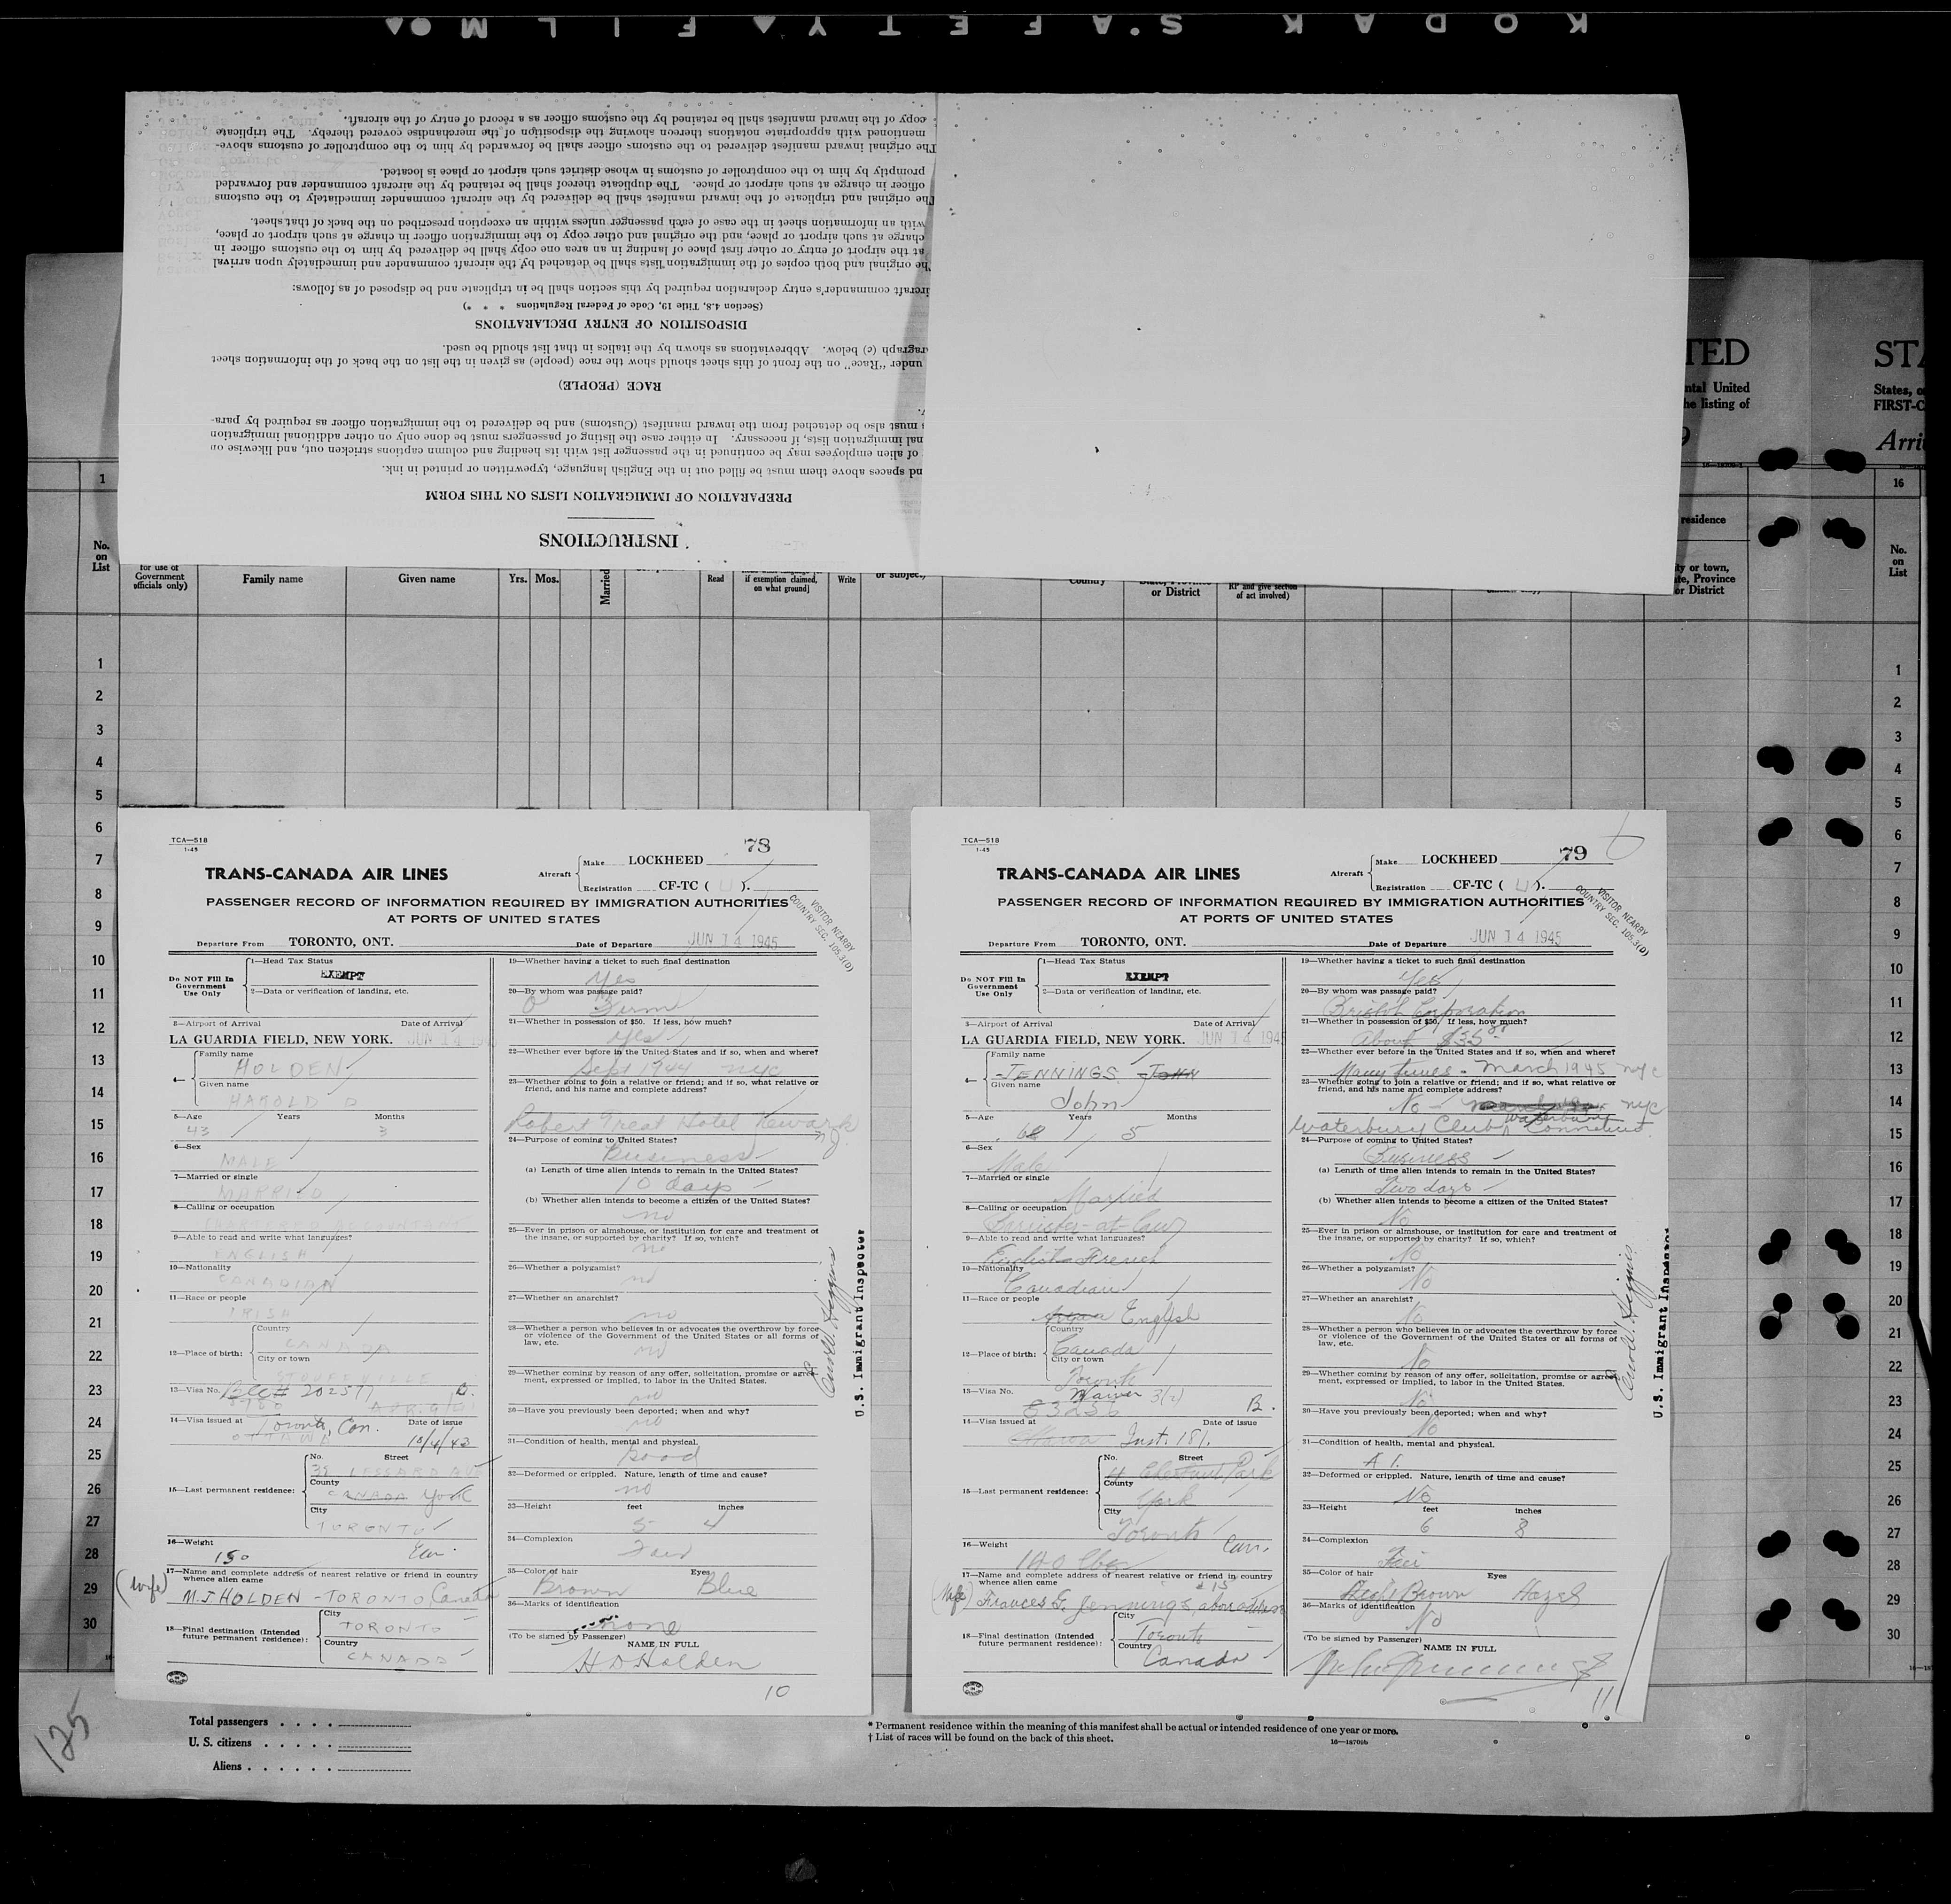 KODAK SAFETY FILM
INSTRUCTIONS
PREPARATION OF IMMIGRATION LISTS ON THIS FORM
nd spaces above them must be filled out in the English language, typewritten or printed in ink.
of alien employees may be continued in the passenger list with its heading and column captions stricken out, and likewise on
nal immigration lists, if necessary. In either case the listing of passengers must be done only on other additional immigration
must also be detached from the inward manifest (Customs) and be delivered to the immigration officer as required by para-
RACE (PEOPLE)
under "Race" on the front of this sheet should show the race (people) as given in the list on the back of the information sheet
ragraph (c) below. Abbreviations as shown by the italics in that list should be used.
DISPOSITION OF ENTRY DECLARATIONS
(Section 4.8, Title 19, Code of Federal Regulations * * *)
ircraft commander's entry declaration required by this section shall be in triplicate and be disposed of as follows:
he original and both copies of the immigration lists shall be detached by the aircraft commander and immediately upon arrival
at the airport of entry or other first place of landing in an area one copy shall be delivered by him to the customs officer in
charge at such airport or place, and the original and other copy to the immigration officer in charge at such airport or place,
with an information sheet in the case of each passenger unless within an exception prescribed on the back of that sheet.
The original and triplicate of the inward manifest shall be delivered by the aircraft commander immediately to the customs
officer in charge at such airport or place. The duplicate thereof shall be retained by the aircraft commander and forwarded
promptly by him to the comptroller of customs in whose district such airport or place is located.
The original inward manifest delivered to the customs officer shall be forwarded by him to the comptroller of customs above-
mentioned with appropriate notations thereon showing the disposition of the merchandise covered thereby. The triplicate
copy of the inward manifest shall be retained by the customs officer as a record of entry of the aircraft.
TED
ntal United
he listing of
9
STA
States, o
FIRST-C
Arri
1
16
residence
No. on List
for use of Government officials only)
Family name
Given name
Yrs. Mos.
Married
Read
if exemption claimed, on what ground]
Write
or subject)
Country
State, Province or District
RP and give section of act involved)
ity or town, ate, Province or District
No. on List
1
2
3
4
5
6
7
8
9
10
11
12
13
14
15
16
17
18
19
20
21
22
23
24
25
26
27
28
29
30
TCA—518
1-45
73
TRANS-CANADA AIR LINES
Aircraft
Make LOCKHEED
Registration CF-TC ( U ).
PASSENGER RECORD OF INFORMATION REQUIRED BY IMMIGRATION AUTHORITIES
AT PORTS OF UNITED STATES
VISITOR NEARBY
COUNTRY SEC. 105.3(D)
Departure From TORONTO, ONT.
Date of Departure JUN 14 1945
Do NOT Fill In Government Use Only
1—Head Tax Status
EXEMPT
2—Data or verification of landing, etc.
3—Airport of Arrival Date of Arrival
LA GUARDIA FIELD, NEW YORK. JUN 14 194
4— Family name
HOLDEN
Given name
HAROLD O
5—Age Years Months
43 3
6—Sex
MALE
7—Married or single
MARRIED
8—Calling or occupation
ACCOUNTANT
9—Able to read and write what languages?
ENGLISH
10—Nationality
CANADIAN
11—Race or people
IRISH
12—Place of birth: Country
CANADA
City or town
STOUFFVILLE
13—Visa No. BCC# 202577 B.
14—Visa issued at Date of issue
Toronto, Can. 10/4/43
15—Last permanent residence: No. Street
38 LESSARD AVE
County
CANADA York
City
TORONTO
16—Weight
150 Can.
17—Name and complete address of nearest relative or friend in country whence alien came
(Wife) M.J. HOLDEN - TORONTO, Canada
18—Final destination (Intended future permanent residence): City
TORONTO
Country
CANADA
19—Whether having a ticket to such final destination
Yes
20—By whom was passage paid?
Firm
21—Whether in possession of $50. If less, how much?
Yes
22—Whether ever before in the United States and if so, when and where?
Sept 1944 NYC
23—Whether going to join a relative or friend; and if so, what relative or friend, and his name and complete address?
Robert Treat Hotel Newark NJ
24—Purpose of coming to United States?
Business
(a) Length of time alien intends to remain in the United States?
10 days
(b) Whether alien intends to become a citizen of the United States?
no
25—Ever in prison or almshouse, or institution for care and treatment of the insane, or supported by charity? If so, which?
no
26—Whether a polygamist?
no
27—Whether an anarchist?
no
28—Whether a person who believes in or advocates the overthrow by force or violence of the Government of the United States or all forms of law, etc.
no
29—Whether coming by reason of any offer, solicitation, promise or agreement, expressed or implied, to labor in the United States.
no
30—Have you previously been deported; when and why?
no
31—Condition of health, mental and physical.
Good
32—Deformed or crippled. Nature, length of time and cause?
no
33—Height feet inches
5 4
34—Complexion
Fair
35—Color of hair Eyes
Brown Blue
36—Marks of identification
none
(To be signed by Passenger) NAME IN FULL
H O Holden
10
U.S. Immigrant Inspector
TCA—518
1-45
79
TRANS-CANADA AIR LINES
Aircraft
Make LOCKHEED
Registration CF-TC ( U ).
PASSENGER RECORD OF INFORMATION REQUIRED BY IMMIGRATION AUTHORITIES
AT PORTS OF UNITED STATES
VISITOR NEARBY
COUNTRY SEC. 105.3(D)
Departure From TORONTO, ONT.
Date of Departure JUN 14 1945
Do NOT Fill In Government Use Only
1—Head Tax Status
EXEMPT
2—Data or verification of landing, etc.
3—Airport of Arrival Date of Arrival
LA GUARDIA FIELD, NEW YORK. JUN 14 1945
4— Family name
JENNINGS JOHN
Given name
John
5—Age Years Months
68 5
6—Sex
Male
7—Married or single
Married
8—Calling or occupation
Barrister-at-law
9—Able to read and write what languages?
English French
10—Nationality
Canadian
11—Race or people
English
12—Place of birth: Country
Canada
City or town
Toronto
13—Visa No. Waiver 3(2)
83256 B.
14—Visa issued at Date of issue
Ottawa Inst. 181.
15—Last permanent residence: No. Street
4 Chestnut Park
County
York
City
Toronto
16—Weight
140 lbs Can.
17—Name and complete address of nearest relative or friend in country whence alien came
(Wife) Frances G. Jennings, above address
18—Final destination (Intended future permanent residence): City
Toronto
Country
Canada
19—Whether having a ticket to such final destination
Yes
20—By whom was passage paid?
Bristol Corporation
21—Whether in possession of $50. If less, how much?
About $35
22—Whether ever before in the United States and if so, when and where?
Many times - March 1945 NYC
23—Whether going to join a relative or friend; and if so, what relative or friend, and his name and complete address?
No - NYC
Waterbury Club, Waterbury Connecticut
24—Purpose of coming to United States?
Business
(a) Length of time alien intends to remain in the United States?
Two days
(b) Whether alien intends to become a citizen of the United States?
No
25—Ever in prison or almshouse, or institution for care and treatment of the insane, or supported by charity? If so, which?
No
26—Whether a polygamist?
No
27—Whether an anarchist?
No
28—Whether a person who believes in or advocates the overthrow by force or violence of the Government of the United States or all forms of law, etc.
No
29—Whether coming by reason of any offer, solicitation, promise or agreement, expressed or implied, to labor in the United States.
No
30—Have you previously been deported; when and why?
No
31—Condition of health, mental and physical.
A 1.
32—Deformed or crippled. Nature, length of time and cause?
No
33—Height feet inches
6 8
34—Complexion
Fair
35—Color of hair Eyes
Light Brown Hazel
36—Marks of identification
No
(To be signed by Passenger) NAME IN FULL
John Jennings
11
U.S. Immigrant Inspector
1
2
3
4
5
6
7
8
9
10
11
12
13
14
15
16
17
18
19
20
21
22
23
24
25
26
27
28
29
30
125
Total passengers . . . .
U. S. citizens . . . . .
Aliens . . . . . .
* Permanent residence within the meaning of this manifest shall be actual or intended residence of one year or more.
† List of races will be found on the back of this sheet.
16—18709b